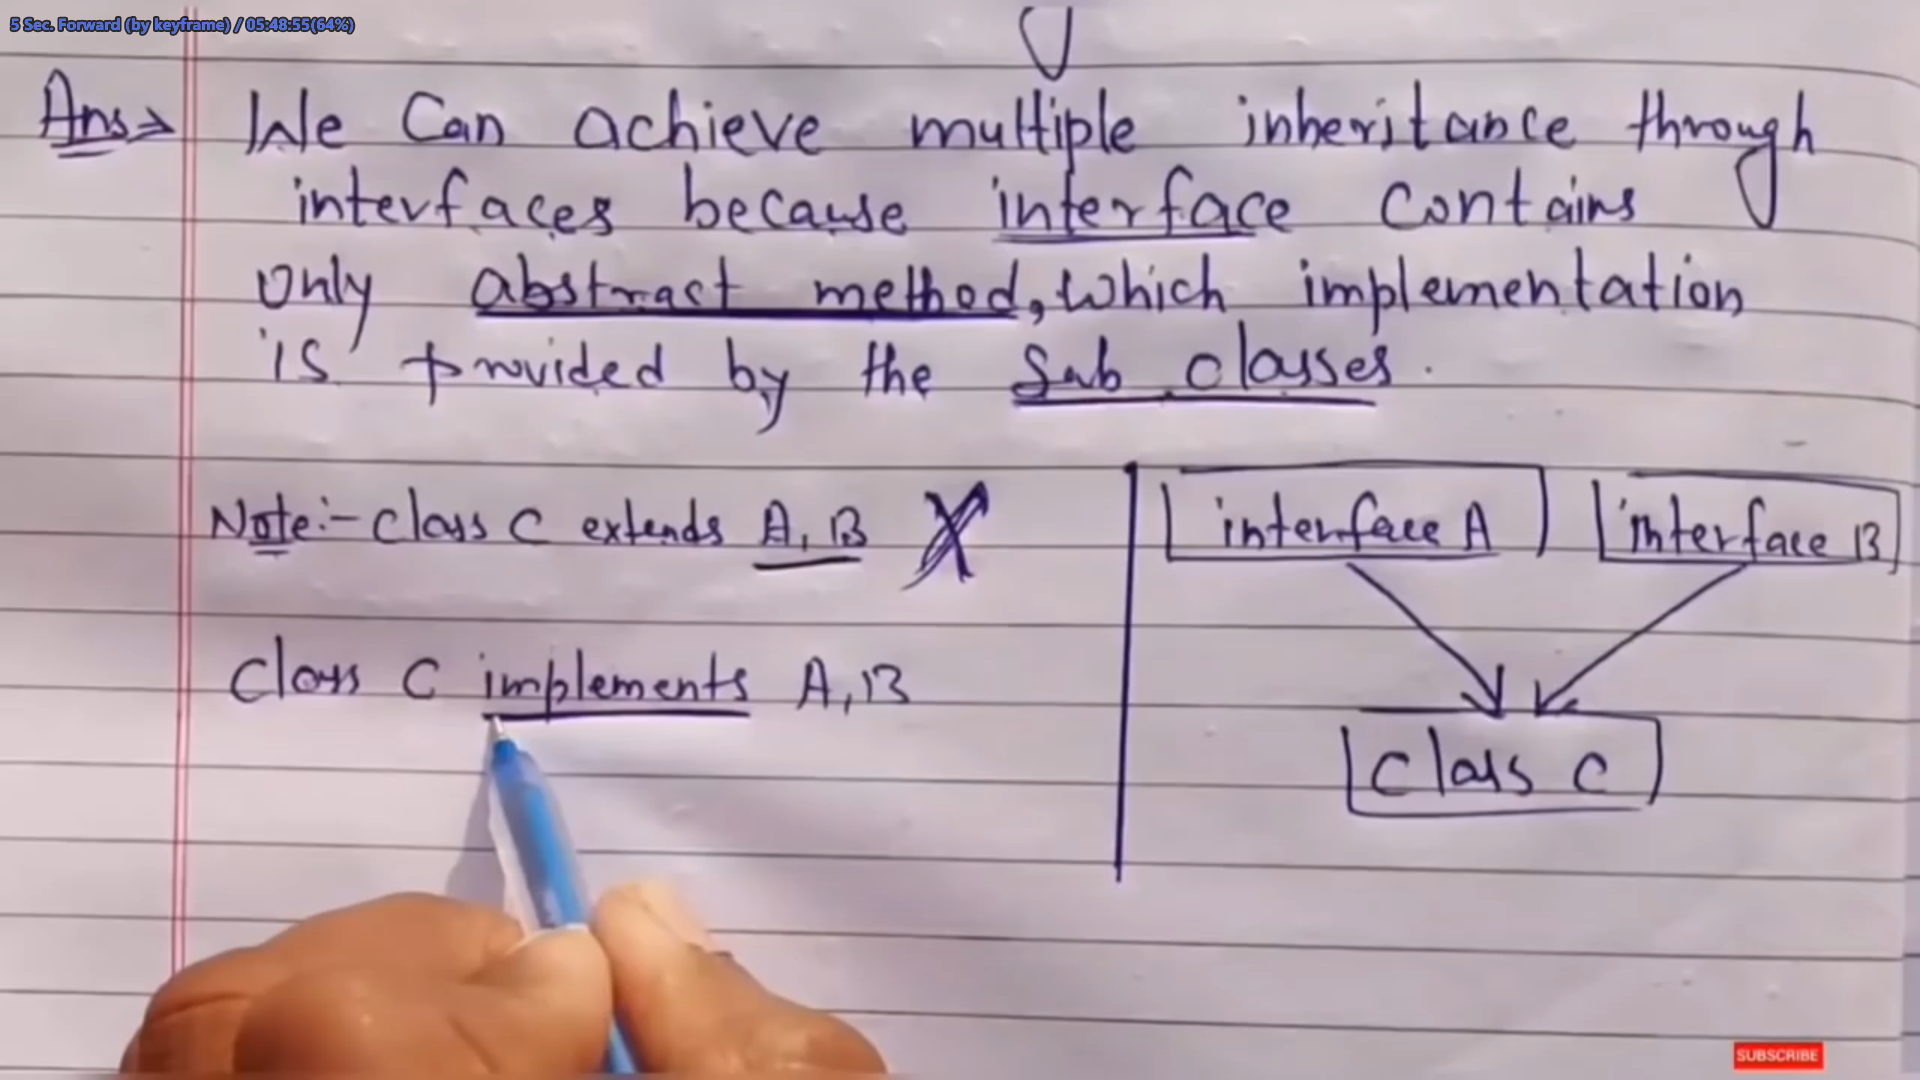 5 Sec. Forward (by keyframe) / 05:48:55(64%)
Ans⇒ We Can achieve multiple inheritance through
interfaces because interface contains
only abstract method, which implementation
is provided by the Sub classes.
Note:- Class C extends A, B X
interface A
interface B
Class C implements A, B
Class C
SUBSCRIBE